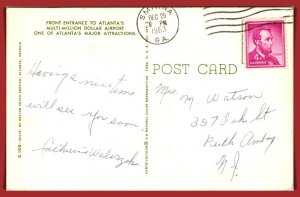 FRONT ENTRANCE TO ATLANTA'S
MULTI-MILLION DOLLAR AIRPORT
ONE OF ATLANTA'S MAJOR ATTRACTIONS.
SMYRNA
DEC 29
PM
1965
GA.
POST CARD
Having a nice time
will see you soon.
Mrs. M. Watson
357 Oak St
Perth Amboy
N.J.